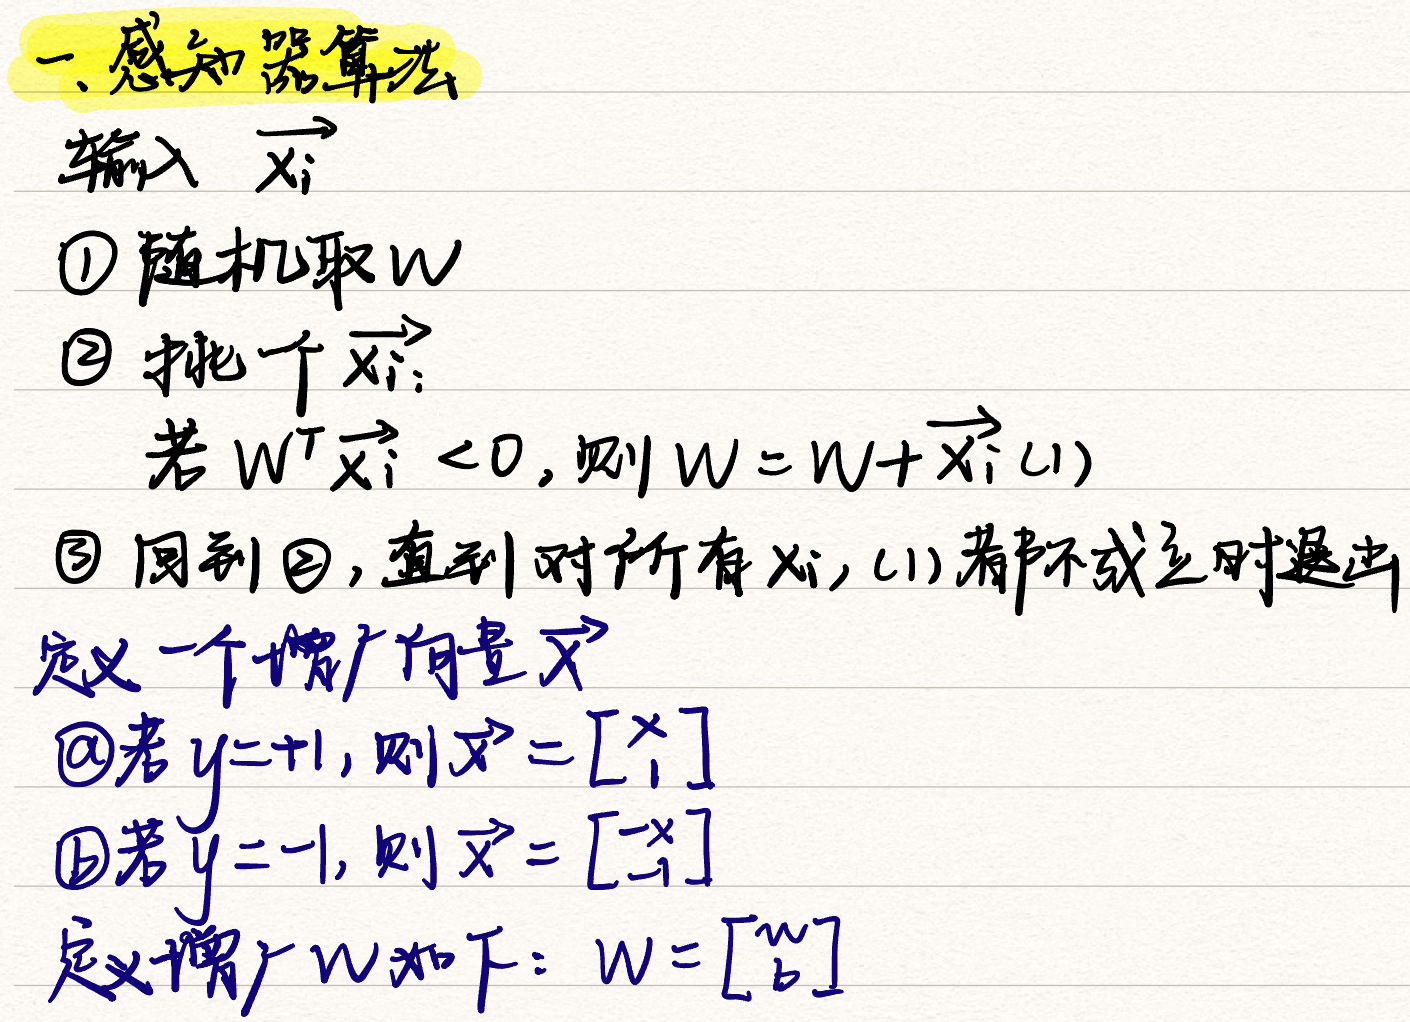 一、感知器算法
输入 $\overrightarrow{x_i}$
① 随机取W
② 挑一个 $\overrightarrow{x_i}$:
若 $W^T\overrightarrow{x_i}<0$, 则 $W=W+\overrightarrow{x_i}$ (1)
③ 回到②, 直到对所有 $x_i$, (1) 都不成立时退出
定义一个增广向量 $\overrightarrow{x}$
ⓐ若 y=+1, 则 $\overrightarrow{x}=\begin{bmatrix}x\\1\end{bmatrix}$
ⓑ若 y=-1, 则 $\overrightarrow{x}=\begin{bmatrix}-x\\-1\end{bmatrix}$
定义增广W如下: $W=\begin{bmatrix}w\\b\end{bmatrix}$